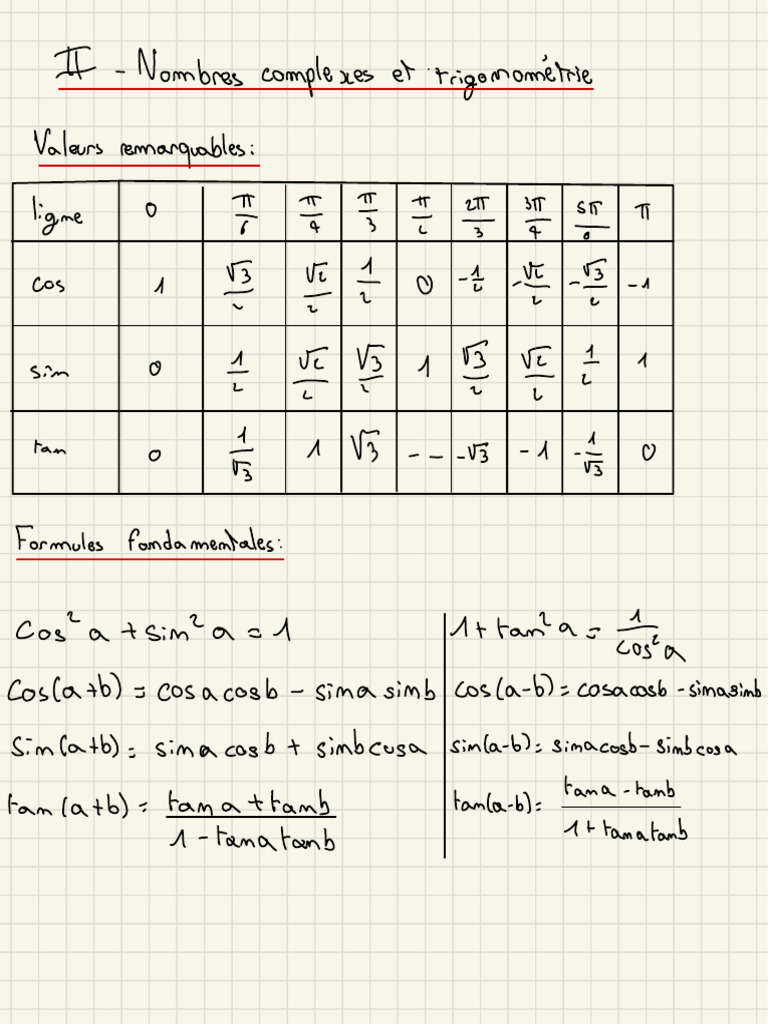 II - Nombres complexes et trigonométrie
Valeurs remarquables:
ligne 0 π/6 π/4 π/3 π/2 2π/3 3π/4 5π/6 π
cos 1 √3/2 √2/2 1/2 0 -1/2 -√2/2 -√3/2 -1
sin 0 1/2 √2/2 √3/2 1 √3/2 √2/2 1/2 1
tan 0 1/√3 1 √3 -- -√3 -1 -1/√3 0
Formules fondamentales:
Cos² a + sin² a = 1
1 + tan² a = 1/cos² a
Cos(a+b) = cosacosb - sinasinb
cos(a-b) = cosacosb - sinasinb
Sin(a+b) = sinacosb + sinbcosa
sin(a-b) = sinacosb - sinbcosa
tan(a+b) = tana + tanb / 1 - tanatanb
tan(a-b) = tana - tanb / 1 + tanatanb